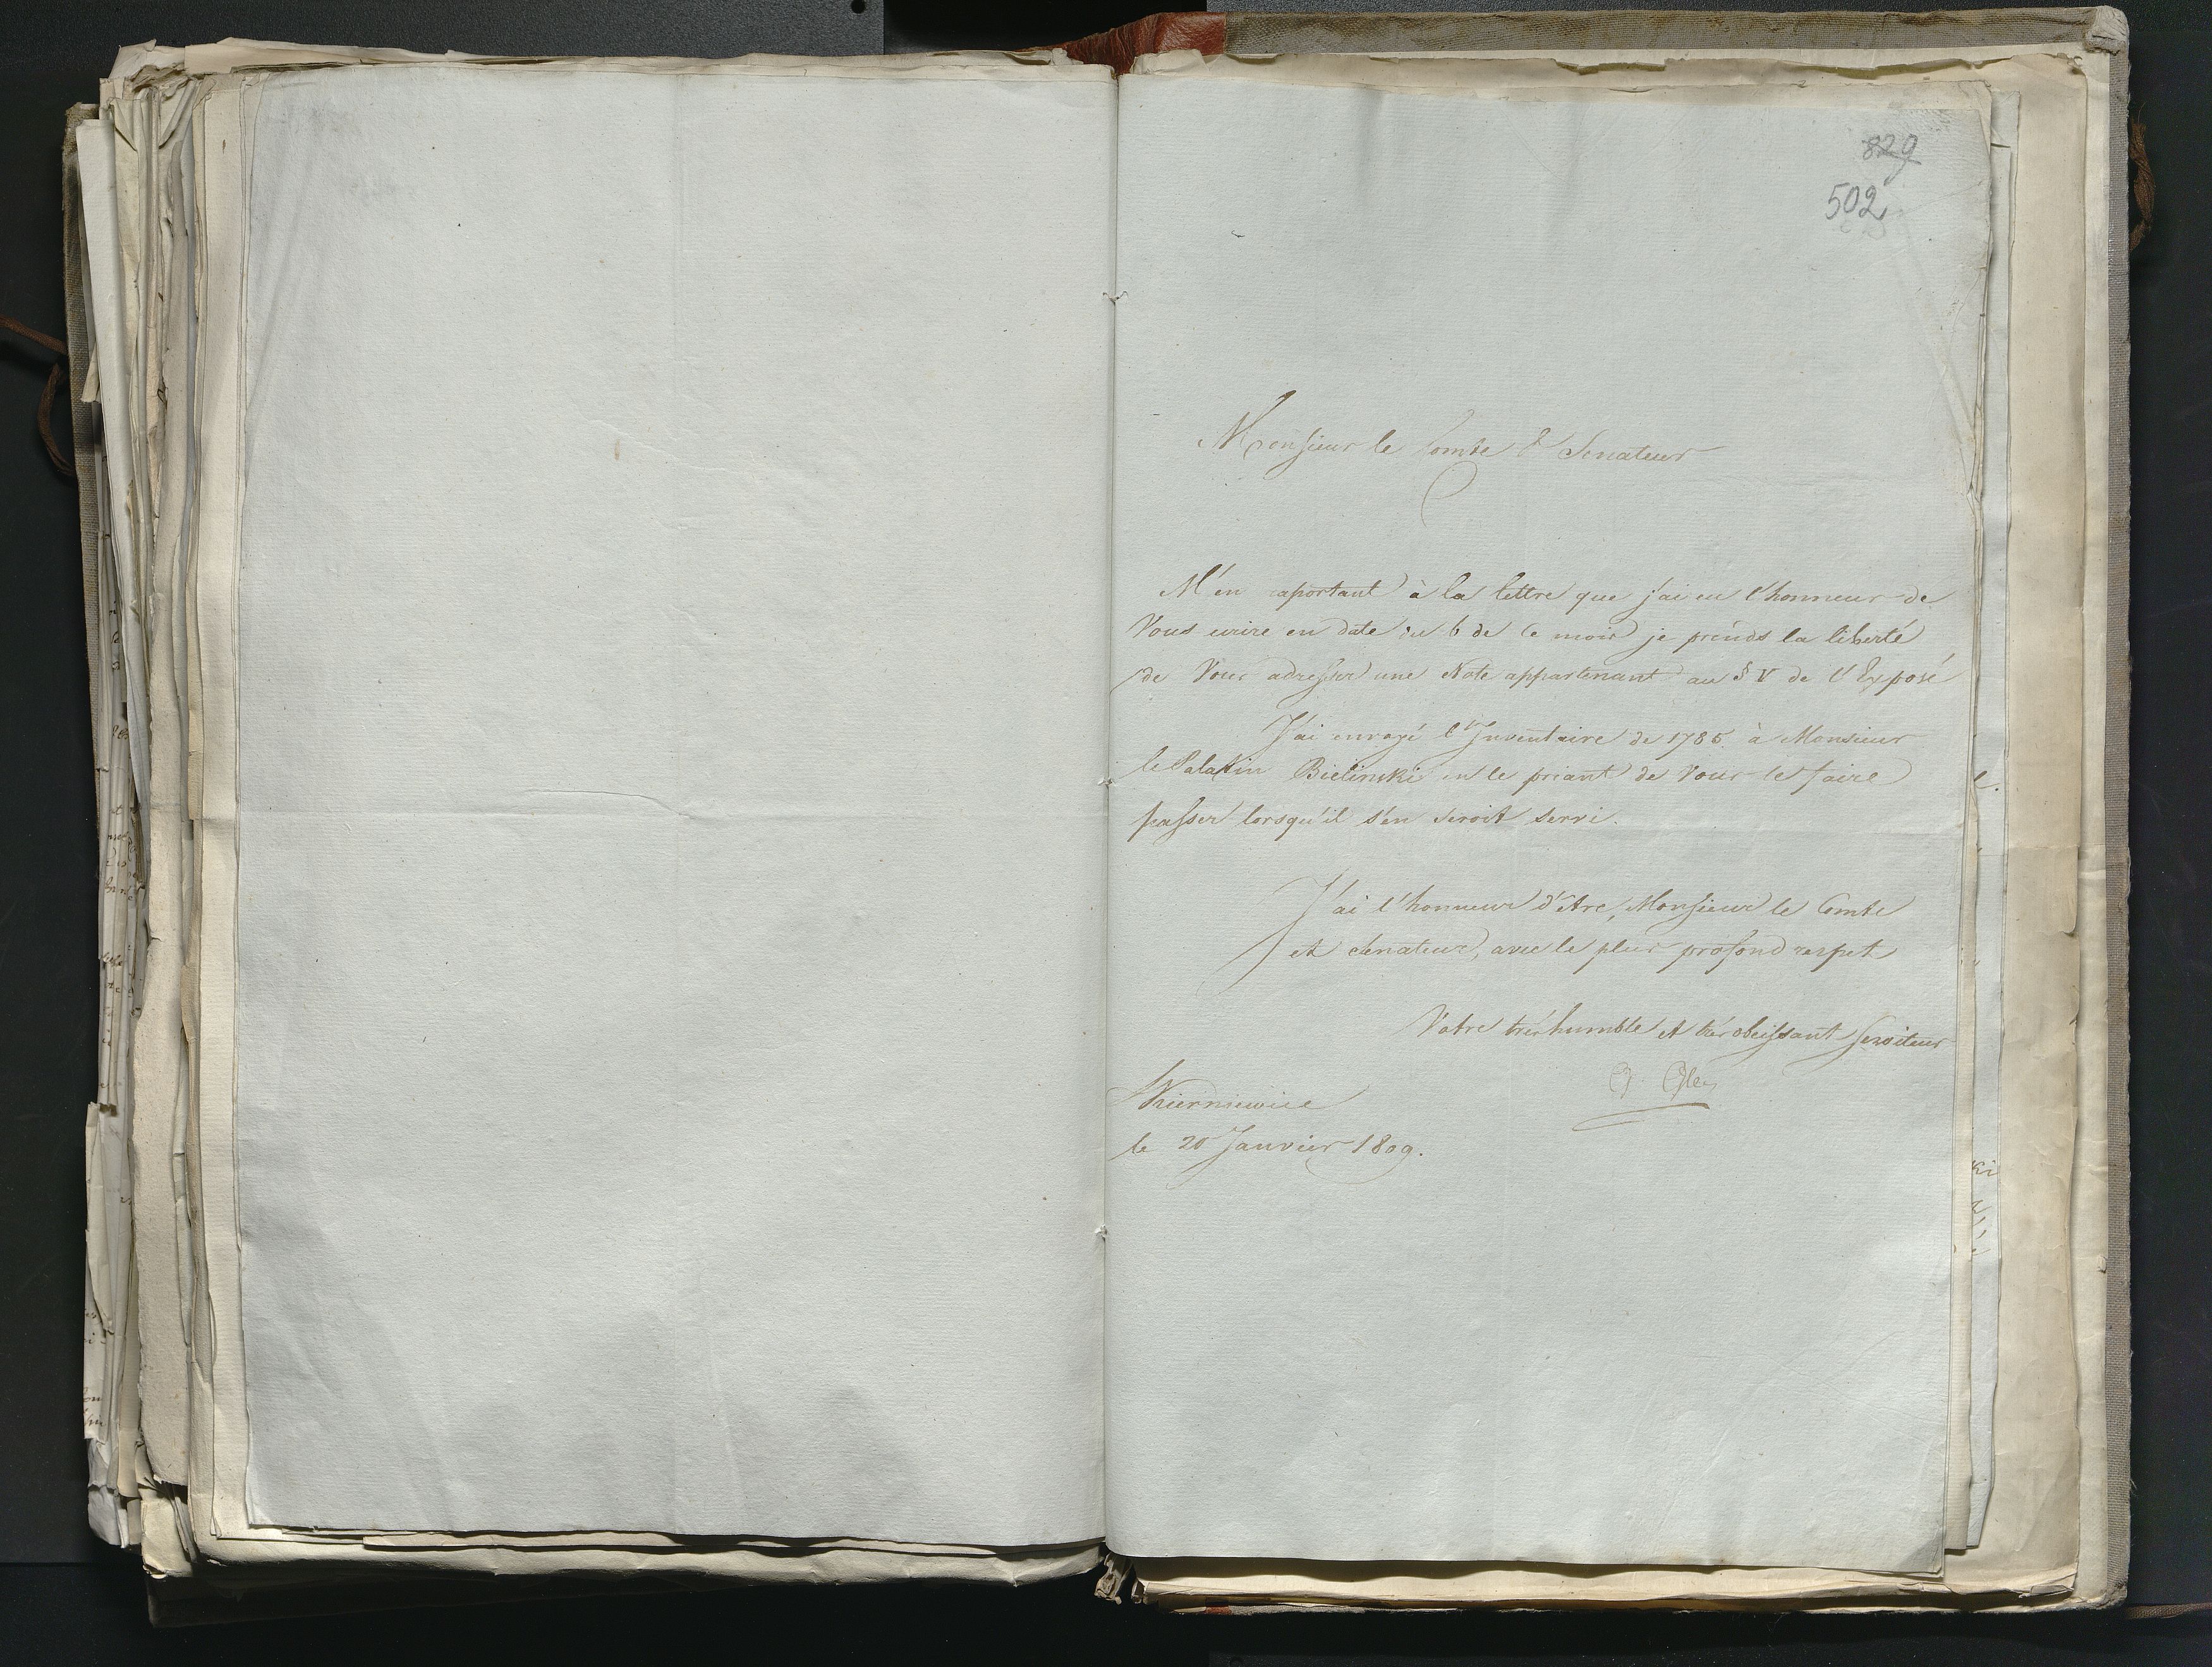 829
502
Monsieur le Comte & Senateur
M'en raportant à la lettre que j'ai eu l'honneur de
Vous ecrire en date du 6 de ce mois je prends la liberté
de Vous adresser une Note appartenant au § V de l'Exposé
J'ai envoyé l'Inventaire de 1785 à Monsieur
le Palatin Bielinski en le priant de Vous le faire
passer lorsqu'il s'en seroit servi.
J'ai l'honneur d'être, Monsieur le Comte
et Senateur, avec le plus profond respet
Votre très humble et très obeissant Serviteur
Skierniewice
le 20 Janvier 1809.